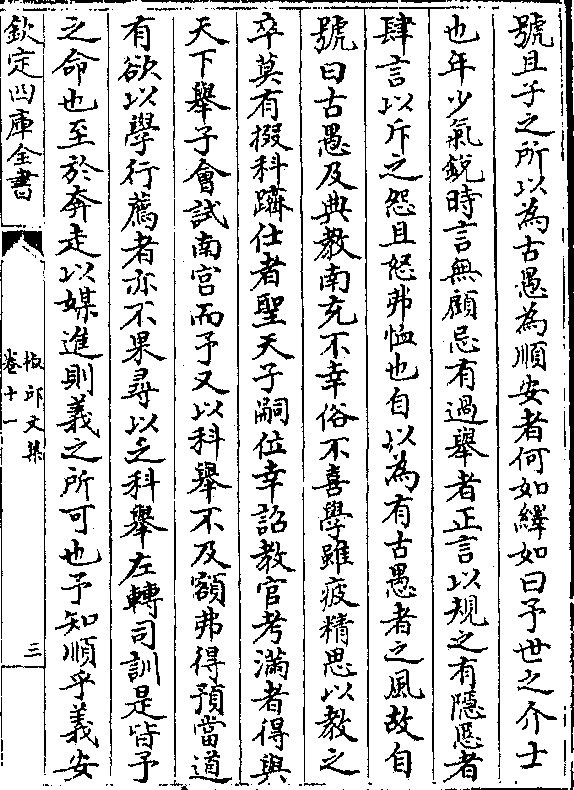 號且子之所以為古愚為順安者何如繹如曰予世之介士
也年少氣銳時言無顧忌有過舉者正言以規之有隱惡者
肆言以斥之怨且怒弗恤也自以為有古愚者之風故自
號曰古愚及典教南充不幸俗不喜學雖疲精思以教之
卒莫有掇科躋仕者聖天子嗣位幸詔教官考滿者得與
天下舉子會試南宫而予又以科舉不及額弗得預當道
有欲以學行薦者亦不果尋以乏科舉左轉司訓是皆予
之命也至於奔走以媒進則義之所可也予知順乎義安
欽定四庫全書
椒邱文集
卷十一
三